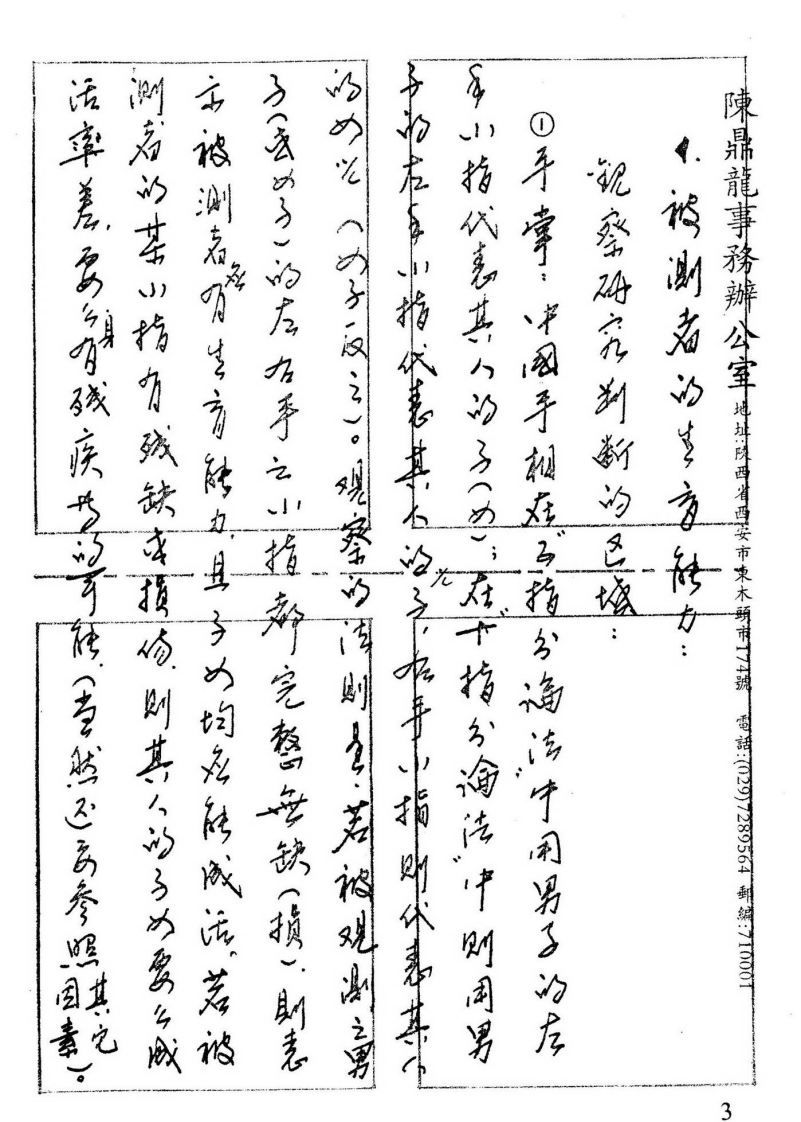 陳鼎龍事務辦公室 地址:陝西省西安市東木頭市174號 電話:(029)7289564 郵編:710001
1. 被測者的生育能力:
觀察研究判斷的區域:
①手掌:中國手相在"五指分論法"中用男子的左
手小指代表其人的子(女);在"十指分論法"中則用男
子的左手小指代表其人的兒子,右手小指則代表其人
的女兒(女子反之)。观察的法則是,若被观測之男
子(或女子)的左右手之小指都完整無缺(損),則表
示被測者应有生育能力,且子女均应能成活,若被
測者的某小指有殘缺或損傷,則其人的子女要么成
活率差,要么有身殘疾等的可能,(当然还要參照其它
因素)。
3